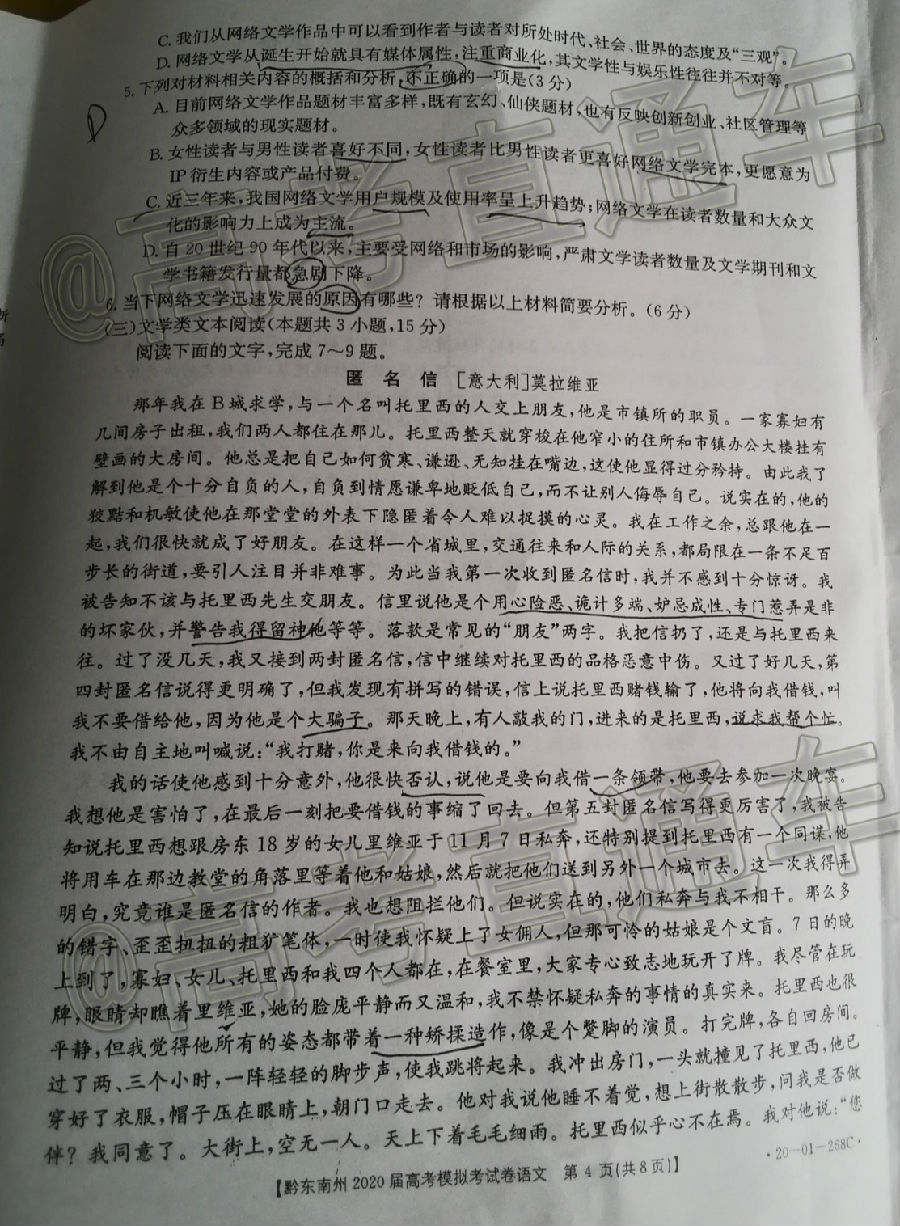 C. 我们从网络文学作品中可以看到作者与读者对所处时代、社会、世界的态度及“三观”。
D. 网络文学从诞生开始就具有媒体属性,注重商业化,其文学性与娱乐性往往并不对等。
5. 下列对材料相关内容的概括和分析,不正确的一项是(3分)
A. 目前网络文学作品题材丰富多样,既有玄幻、仙侠题材,也有反映创新创业、社区管理等
众多领域的现实题材。
B. 女性读者与男性读者喜好不同,女性读者比男性读者更喜好网络文学完本,更愿意为
IP衍生内容或产品付费。
C. 近三年来,我国网络文学用户规模及使用率呈上升趋势;网络文学在读者数量和大众文
化的影响力上成为主流。
D. 自20世纪90年代以来,主要受网络和市场的影响,严肃文学读者数量及文学期刊和文
学书籍发行量都急剧下降。
6. 当下网络文学迅速发展的原因有哪些?请根据以上材料简要分析。(6分)
(三)文学类文本阅读(本题共3小题,15分)
阅读下面的文字,完成7~9题。
匿名信 [意大利]莫拉维亚
那年我在B城求学,与一个名叫托里西的人交上朋友,他是市镇所的职员。一家寡妇有
几间房子出租,我们两人都住在那儿。托里西整天就穿梭在他窄小的住所和市镇办公大楼挂有
壁画的大房间。他总是把自己如何贫寒、谦逊、无知挂在嘴边,这使他显得过分矜持。由此我了
解到他是个十分自负的人,自负到情愿谦卑地贬低自己,而不让别人侮辱自己。说实在的,他的
狡黠和机敏使他在那堂堂的外表下隐匿着令人难以捉摸的心灵。我在工作之余,总跟他在一
起,我们很快就成了好朋友。在这样一个省城里,交通往来和人际的关系,都局限在一条不足百
步长的街道,要引人注目并非难事。为此当我第一次收到匿名信时,我并不感到十分惊讶。我
被告知不该与托里西先生交朋友。信里说他是个用心险恶、诡计多端、妒忌成性、专门惹弄是非
的坏家伙,并警告我得留神他等等。落款是常见的“朋友”两字。我把信扔了,还是与托里西来
往。过了没几天,我又接到两封匿名信,信中继续对托里西的品格恶意中伤。又过了好几天,第
四封匿名信说得更明确了,但我发现有拼写的错误,信上说托里西赌钱输了,他将向我借钱,叫
我不要借给他,因为他是个大骗子。那天晚上,有人敲我的门,进来的是托里西,说求我帮个忙。
我不由自主地叫喊说:“我打赌,你是来向我借钱的。”
我的话使他感到十分意外,他很快否认,说他是要向我借一条领带,他要去参加一次晚宴。
我想他是害怕了,在最后一刻把要借钱的事缩了回去。但第五封匿名信写得更厉害了,我被告
知说托里西想跟房东18岁的女儿里维亚于11月7日私奔,还特别提到托里西有一个同谋,他
将用车在那边教堂的角落里等着他和姑娘,然后就把他们送到另外一个城市去。这一次我得弄
明白,究竟谁是匿名信的作者。我也想阻拦他们。但说实在的,他们私奔与我不相干。那么多
的错字、歪歪扭扭的粗犷笔体,一时使我怀疑上了女佣人,但那可怜的姑娘是个文盲。7日的晚
上到了,寡妇、女儿、托里西和我四个人都在,在餐室里,大家专心致志地玩开了牌。我尽管在玩
牌,眼睛却瞧着里维亚,她的脸庞平静而又温和,我不禁怀疑私奔的事情的真实来。托里西也很
平静,但我觉得他所有的姿态都带着一种矫揉造作,像是个蹩脚的演员。打完牌,各自回房间。
过了两、三个小时,一阵轻轻的脚步声,使我跳将起来。我冲出房门,一头就撞见了托里西,他已
穿好了衣服,帽子压在眼睛上,朝门口走去。他对我说他睡不着觉,想上街散散步,问我是否做
伴?我同意了。大街上,空无一人。天上下着毛毛细雨。托里西似乎心不在焉。我对他说:“您
【黔东南州2020届高考模拟考试卷语文 第4页(共8页)】
·20-01-268C·
@高考直通车
@高考直通车